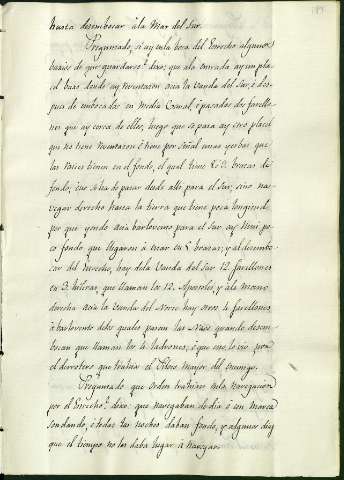 hasta desembocar à la Mar del Sur.
Preguntado, si ay en la boca del Estrecho algunos
baxios de que guardarse: dixo; que ala entrada ay un pla
cel baxo donde ay menearon acia la banda del Sur, è des
pues de embocados en Media Canal, è pasados dos farello
nes que ay cerca de ellos, luego que se pasa ay otro placel
que no tiene menearon è tiene por señal unas yerbas que
las raices tienen en el fondo, el qual tiene 8 ò 9 brazas de
fondo, è no se ha de pasar desde alli para el Sur, sino na
vegar derecho hacia la tierra que tiene poca longitud
por que yendo acia barlovento para el Sur ay mui po
co fondo que llegaron à tocar en 5 brazas; y al desembo
car del Estrecho, hay de la banda del Sur 12 farellones
en 3 hileras que llaman los 12 Apostoles, y à la mano
derecha acia la banda del Norte hay otros 4 farellones
à barlovento delos quales pasan las Naos quando desem
bocan que llaman los 4 ladrones, è que esto lo vio por
el derrotero que trahia el Piloto mayor del enemigo.
Preguntado que orden trahian en la navegacion
por el Estrecho: dixo: que navegaban de dia è con marea
sondando, è todas las noches daban fondo, y algunos dias
que el tiempo no les daba lugar à navegar.